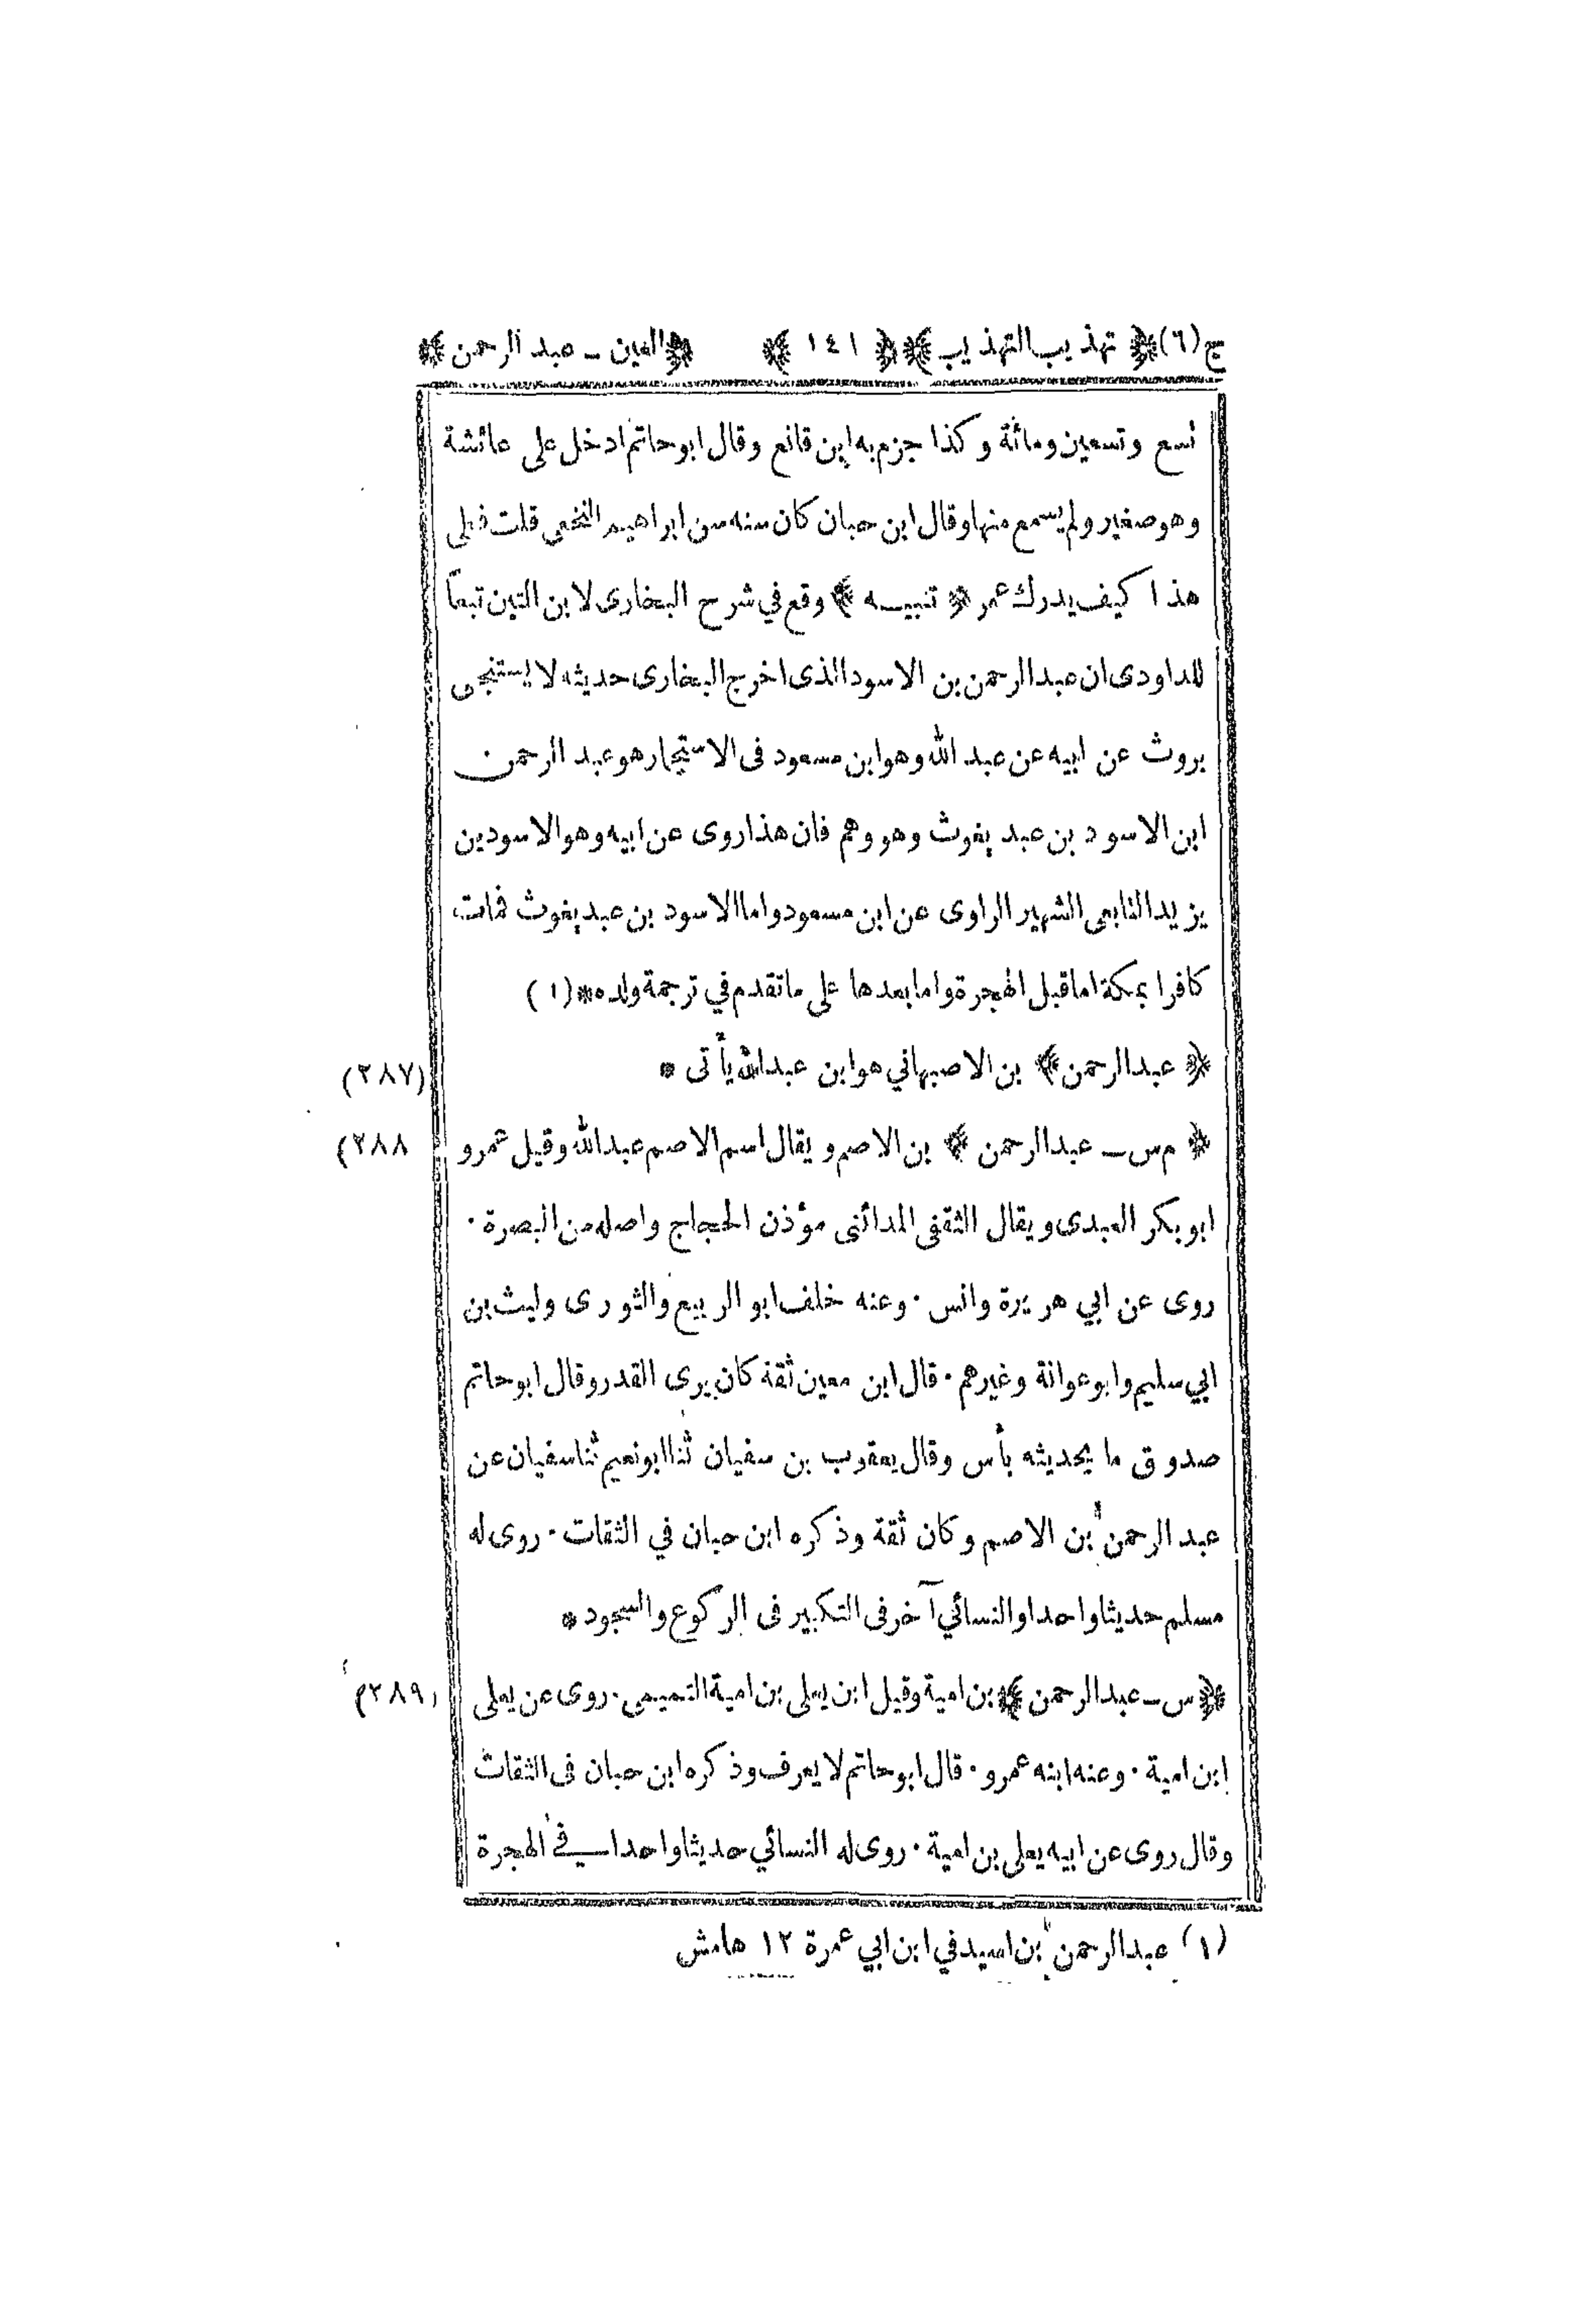 ج(٦)﴿ تهذيب التهذيب ﴾﴿ ١٤١ ﴾ ﴿العين ـ عبد الرحمن ﴾
تسع وتسعين ومائة وكذا جزم به ابن قانع وقال ابوحاتم ادخل على عائشة
وهو صغير ولم يسمع منها وقال ابن حبان كان سنه سن ابراهيم النخعي قلت فعلى
هذا كيف يدرك عمر ﴿ تنبيــه ﴾ وقع في شرح البخارى لابن التين تبعاً
للداودى ان عبد الرحمن بن الاسود الذى اخرج البخارى حديثه لا يستنجى
بروث عن ابيه عن عبد الله وهو ابن مسعود فى الاستجمار هو عبد الرحمن
ابن الاسود بن عبد يغوث وهو وهم فان هذا روى عن ابيه وهو الاسود بن
يزيد التابعى الشهير الراوى عن ابن مسعود واما الاسود بن عبد يغوث فمات
كافرا بمكة اما قبل الهجرة واما بعدها على ما تقدم في ترجمة ولده * (١)
﴿ عبد الرحمن ﴾ بن الاصبهاني هو ابن عبد الله يأتى *
(٢٨٧)
﴿ م س ـ عبد الرحمن ﴾ بن الاصم ويقال اسم الاصم عبد الله وقيل عمرو
٢٨٨)
ابو بكر العبدى ويقال الثقفى المدائنى مؤذن الحجاج واصله من البصرة ٠
روى عن ابي هريرة وانس ٠ وعنه خلف ابو الربيع والثورى وليث بن
ابي سليم وابو عوانة وغيرهم ٠ قال ابن معين ثقة كان يرى القدر وقال ابو حاتم
صدوق ما بحديثه بأس وقال يعقوب بن سفيان ثنا ابو نعيم ثنا سفيان عن
عبد الرحمن بن الاصم وكان ثقة وذكره ابن حبان في الثقات ٠ روى له
مسلم حديثا واحدا والنسائي آخر فى التكبير فى الركوع والسجود *
﴿ س ـ عبد الرحمن ﴾ بن امية وقيل ابن يعلى بن امية التميمى ٠ روى عن يعلى
٢٨٩)
ابن امية ٠ وعنه ابنه عمرو ٠ قال ابو حاتم لا يعرف وذكره ابن حبان فى الثقات
وقال روى عن ابيه يعلى بن امية ٠ روى له النسائي حديثا واحدا في الهجرة
(١) عبد الرحمن بن اسيد في ابن ابي عمرة ١٢ هامش